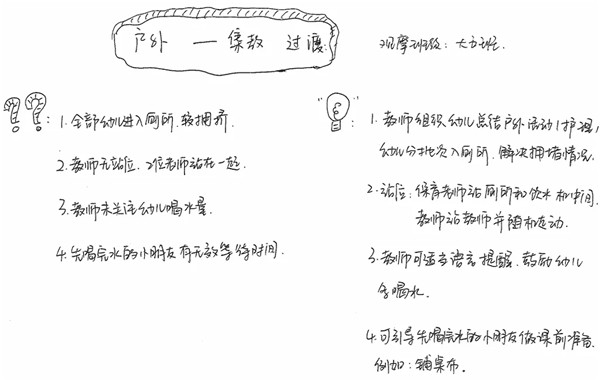 户外 — 集教 过渡:
观摩班级: 大六班.
1.全部幼儿进入厕所,较拥挤.
2.教师无站位,2位老师站在一起.
3.教师未关注幼儿喝水量.
4.先喝完水的小朋友有无效等待时间.
1.教师组织幼儿总结户外活动/护理,
幼儿分批次入厕所,解决拥堵情况.
2.站位:保育老师站厕所和饮水机中间.
教师站教师并随机走动.
3.教师可适当语言提醒,鼓励幼儿
多喝水.
4.可引导先喝完水的小朋友做课前准备.
例如:铺桌布.